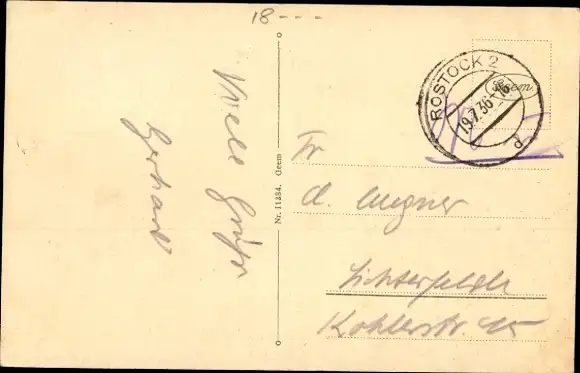 18---
Viele Grüße
Gerhard
Nr. 11384. Geem
ROSTOCK 2
19.7.36
p
Geem
Fr
Lichterfelde
Kohlerstr. 45